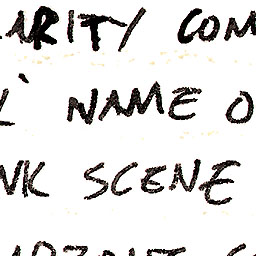 ARITY COM
L' NAME O
NK SCENE